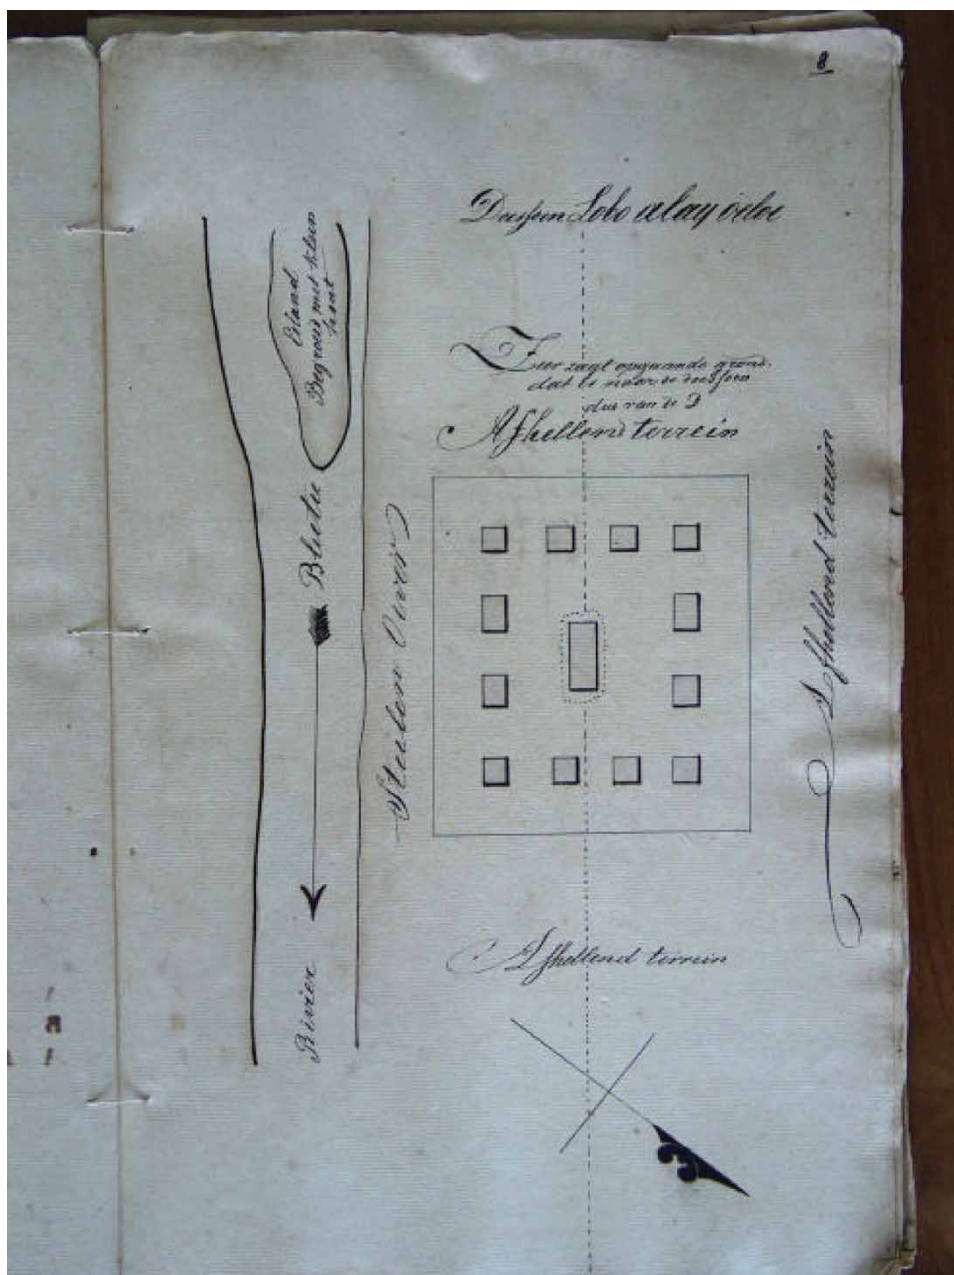 8
Doessoen Lobo alay oeloe
Eiland
Begroeid met klein
hout
Zeer zagt opgaande grond.
dat is naar de doessoen
dus van de D
Afhellend terrein
Rivier Blietie
Steilen Oever
Afhellend terrein
Afhellend terrein